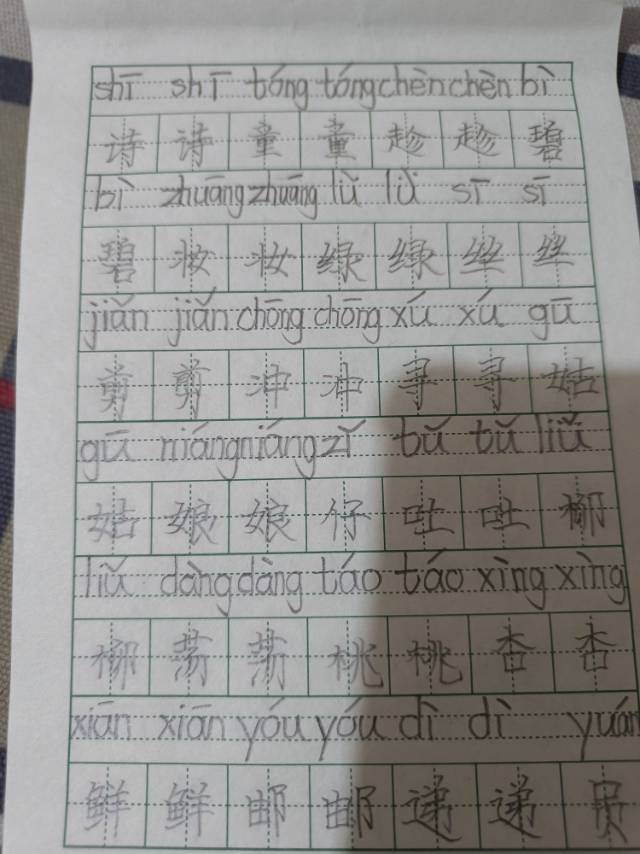 shī shī tóng tóng chèn chèn bì
诗 诗 童 童 趁 趁 碧
bì zhuāng zhuāng lǜ lǜ sī sī
碧 妆 妆 绿 绿 丝 丝
jiǎn jiǎn chōng chōng xú xú gū
剪 剪 冲 冲 寻 寻 姑
gū niáng niáng zǐ tǔ tǔ liǔ
姑 娘 娘 仔 吐 吐 柳
liǔ dàng dàng táo táo xìng xìng
柳 荡 荡 桃 桃 杏 杏
xiān xiān yóu yóu dì dì yuán
鲜 鲜 邮 邮 递 递 员